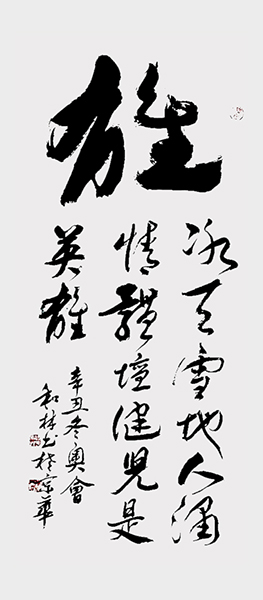 雄
冰天雪地人涌
情體壇健兒是
英雄
辛丑冬奧會
和林书於京華